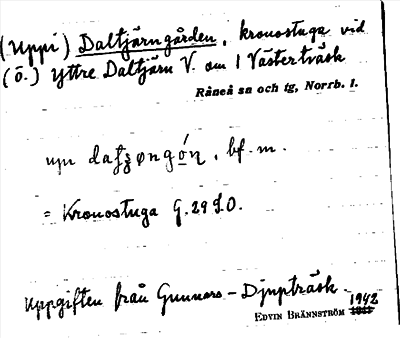 (Uppi) Daltjärngården, kronostuga vid
(ö.) Yttre Daltjärn V. om 1 Västerträsk
Råneå sn och tg, Norrb. l.
bf. m.
= Kronostuga G. 29 S.O.
Uppgiften från Gunnars-Djupträsk.
1942
EDVIN BRÄNNSTRÖM